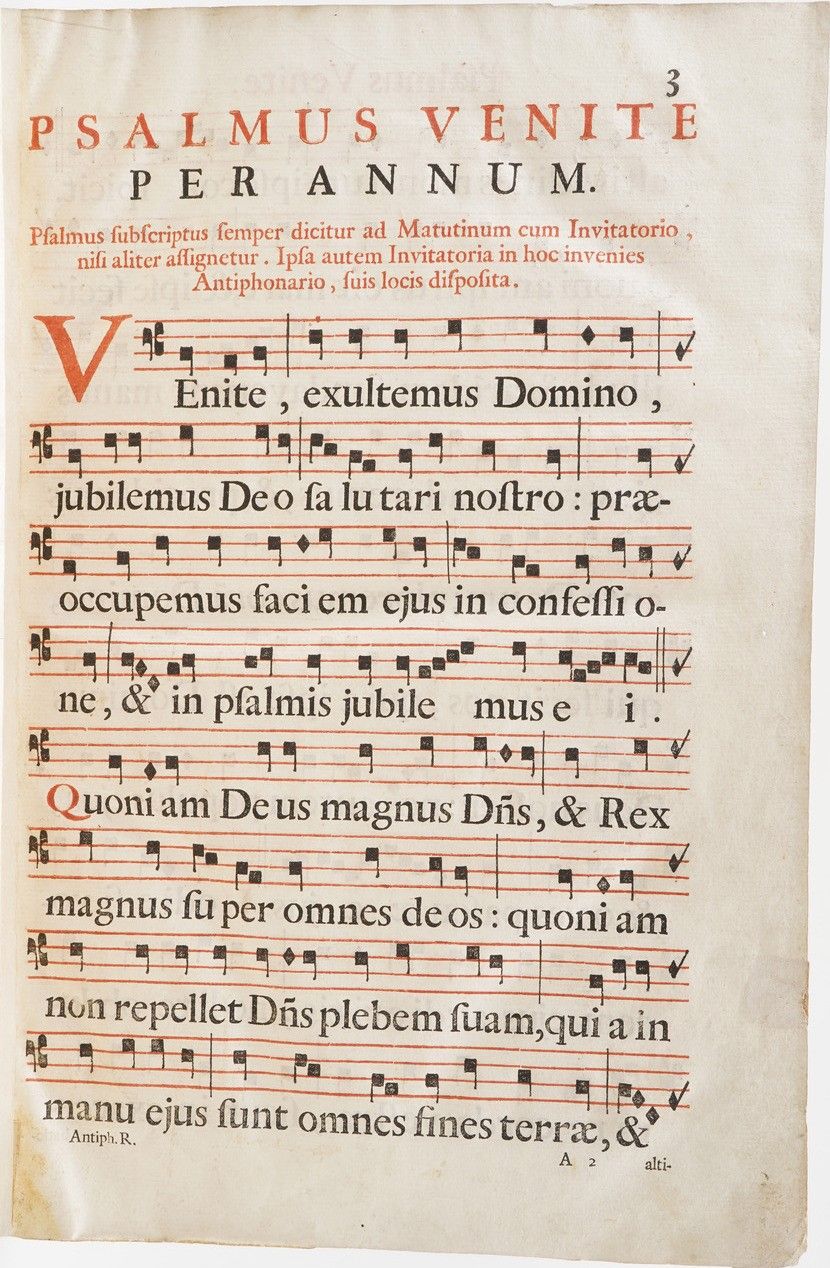 3
PSALMUS VENITE
PER ANNUM.
Pſalmus ſubſcriptus ſemper dicitur ad Matutinum cum Invitatorio ,
niſi aliter aſſignetur . Ipſa autem Invitatoria in hoc invenies
Antiphonario , ſuis locis diſpoſita .
VEnite , exultemus Domino ,
jubilemus De o ſa lu tari noſtro : præ-
occupemus faci em ejus in confeſſi o-
ne , & in pſalmis jubile mus e i .
Quoni am De us magnus Dñs , & Rex
magnus ſu per omnes de os : quoni am
non repellet Dñs plebem ſuam, qui a in
manu ejus ſunt omnes fines terræ, &
Antiph. R.
A 2 alti-